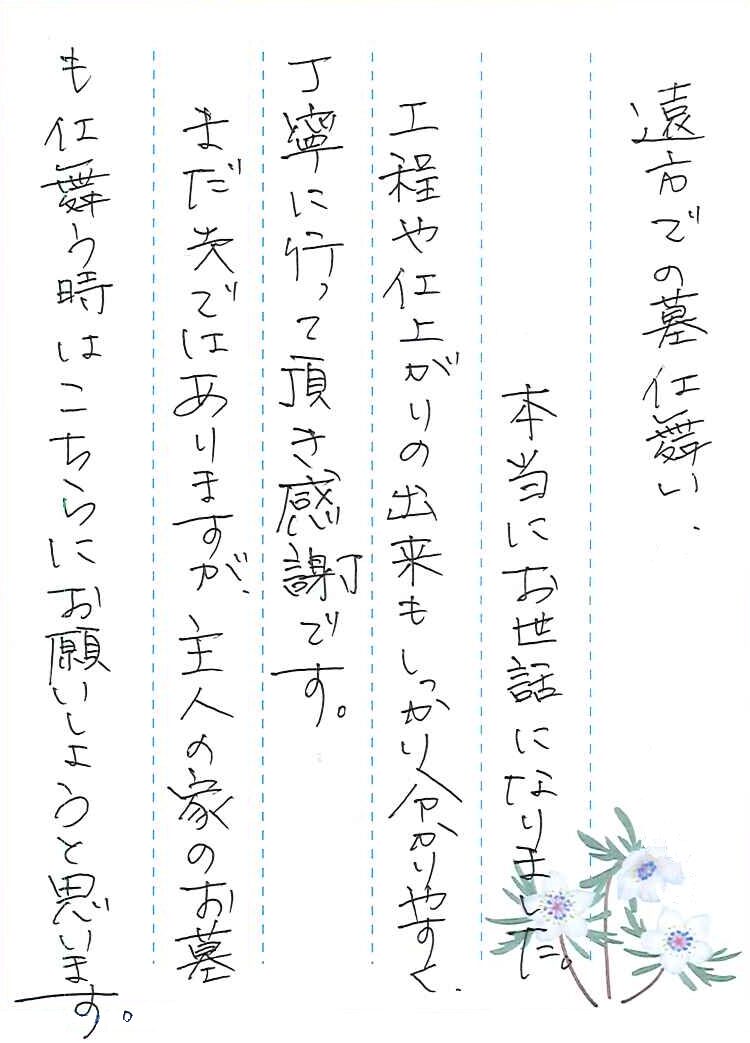 遠方での墓仕舞い、
本当にお世話になりました。
工程や仕上がりの出来もしっかり分かりやすく、
丁寧に行って頂き感謝です。
まだ先ではありますが、主人の家のお墓
も仕舞う時はこちらにお願いしようと思います。